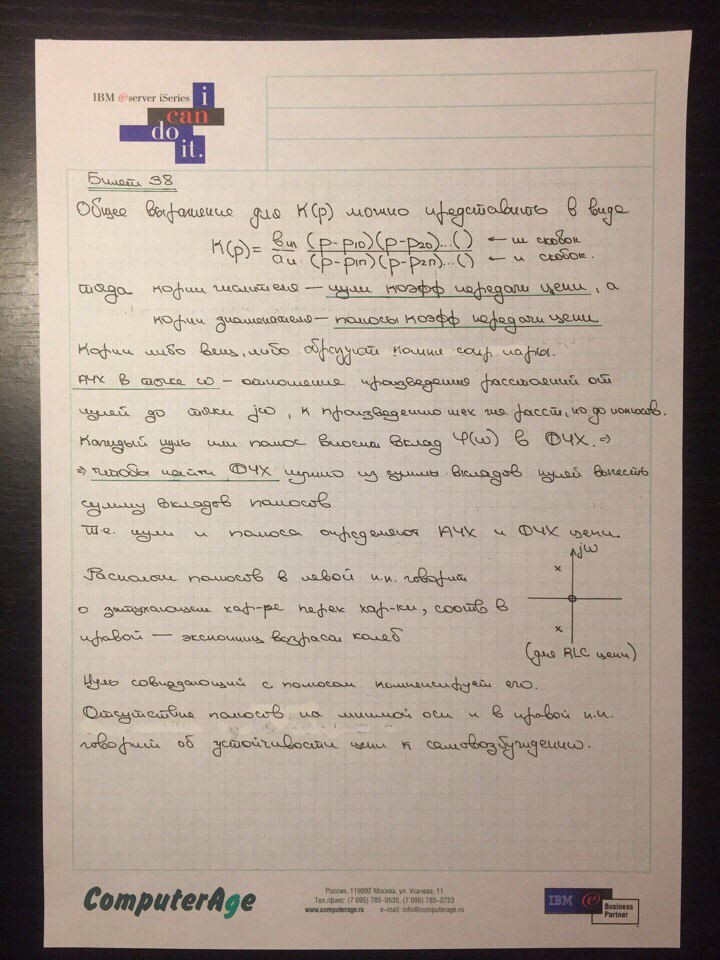 IBM e server iSeries
i
can
do
it.
Билет 38
Общее выражение для K(p) можно представить в виде
K(p) = bm/an · (p-p10)(p-p20)...() / (p-p1п)(p-p2п)...() ← m скобок ← n скобок.
тогда корни числителя — нули коэфф передачи цепи, а
корни знаменателя — полюсы коэфф передачи цепи
Корни либо вещ, либо образуют компл сопр пары.
АЧХ в точке ω — отношение произведения расстояний от
нулей до точки jω, к произведению тех же расст, но до полюсов.
Каждый нуль или полюс вносит вклад φ(ω) в ФЧХ. ⇒
⇒ чтобы найти ФЧХ нужно из суммы вкладов нулей вычесть
сумму вкладов полюсов
Т.е. нули и полюса определяют АЧХ и ФЧХ цепи
jω
Располож полюсов в левой п.п. говорит
о затухающем хар-ре перех хар-ки, соотв в
правой — экспоненц возраст колеб
(для RLC цепи)
Нуль совпадающий с полюсом компенсирует его.
Отсутствие полюсов на мнимой оси и в правой п.п.
говорит об устойчивости цепи к самовозбуждению.
ComputerAge
Россия, 119992 Москва, ул. Усачева, 11
Тел./факс: (7 095) 785-0535, (7 095) 785-2723
www.computerage.ru e-mail: info@computerage.ru
IBM e Business Partner